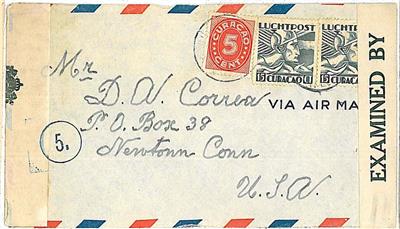 CURACAO
5
CENT
LUCHTPOST
15 CURAÇAO
LUCHTPOST
15 CURAÇAO
VIA AIR MA
EXAMINED BY
5.
Mr
D. V. Correa
P.O. Box 38
Newtonn Conn
U.S.A.